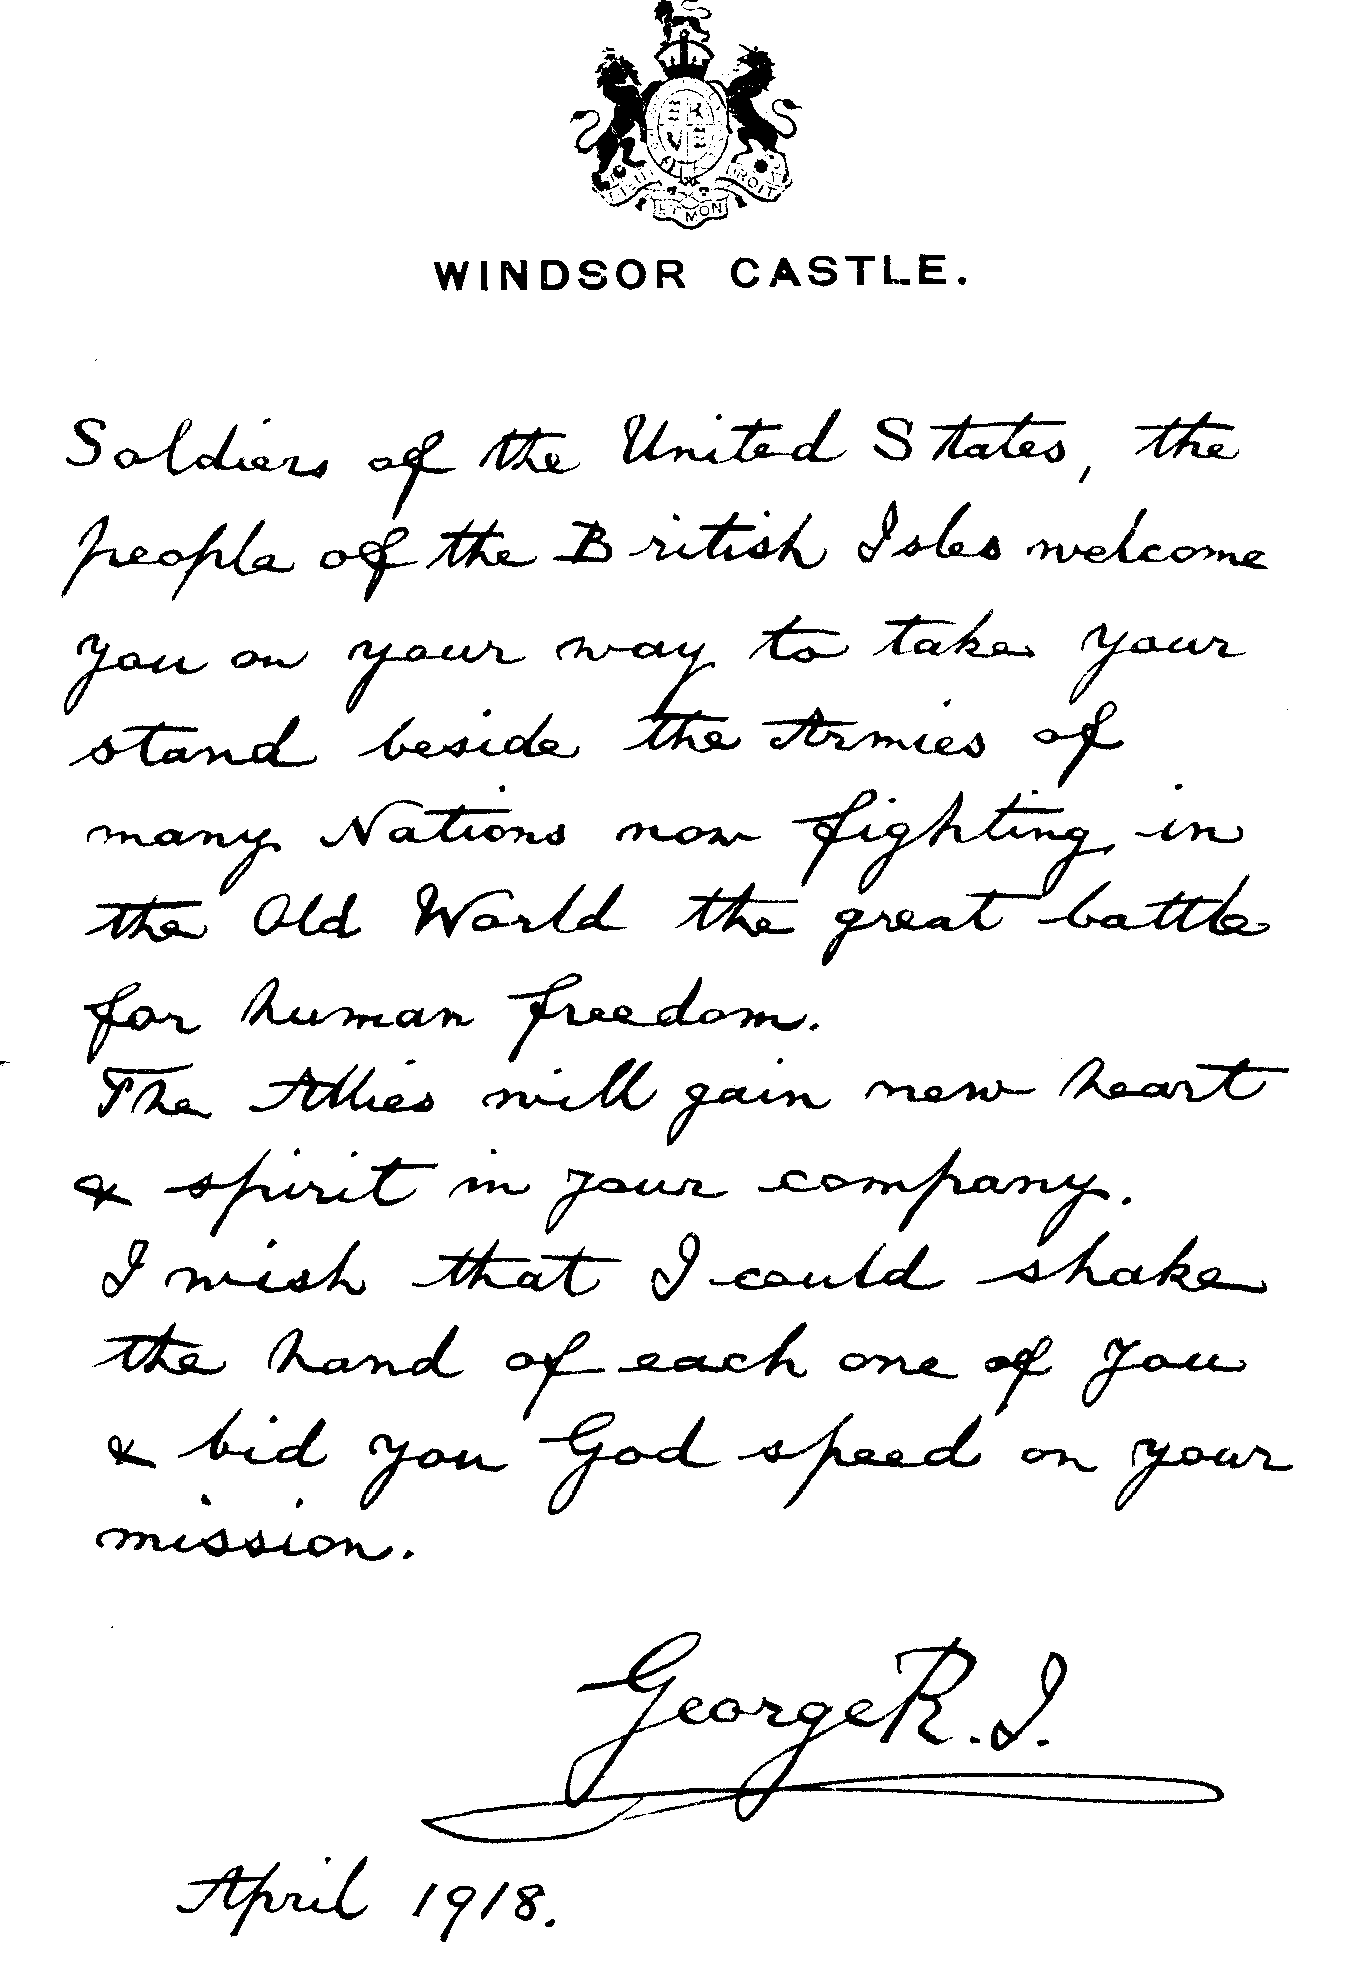 DROIT
ET MON
WINDSOR CASTLE.
Soldiers of the United States, the
people of the British Isles welcome
you on your way to take your
stand beside the Armies of
many Nations now fighting in
the Old World the great battle
for human freedom.
The Allies will gain new heart
& spirit in your company.
I wish that I could shake
the hand of each one of you
& bid you God speed on your
mission.
George R.I.
April 1918.